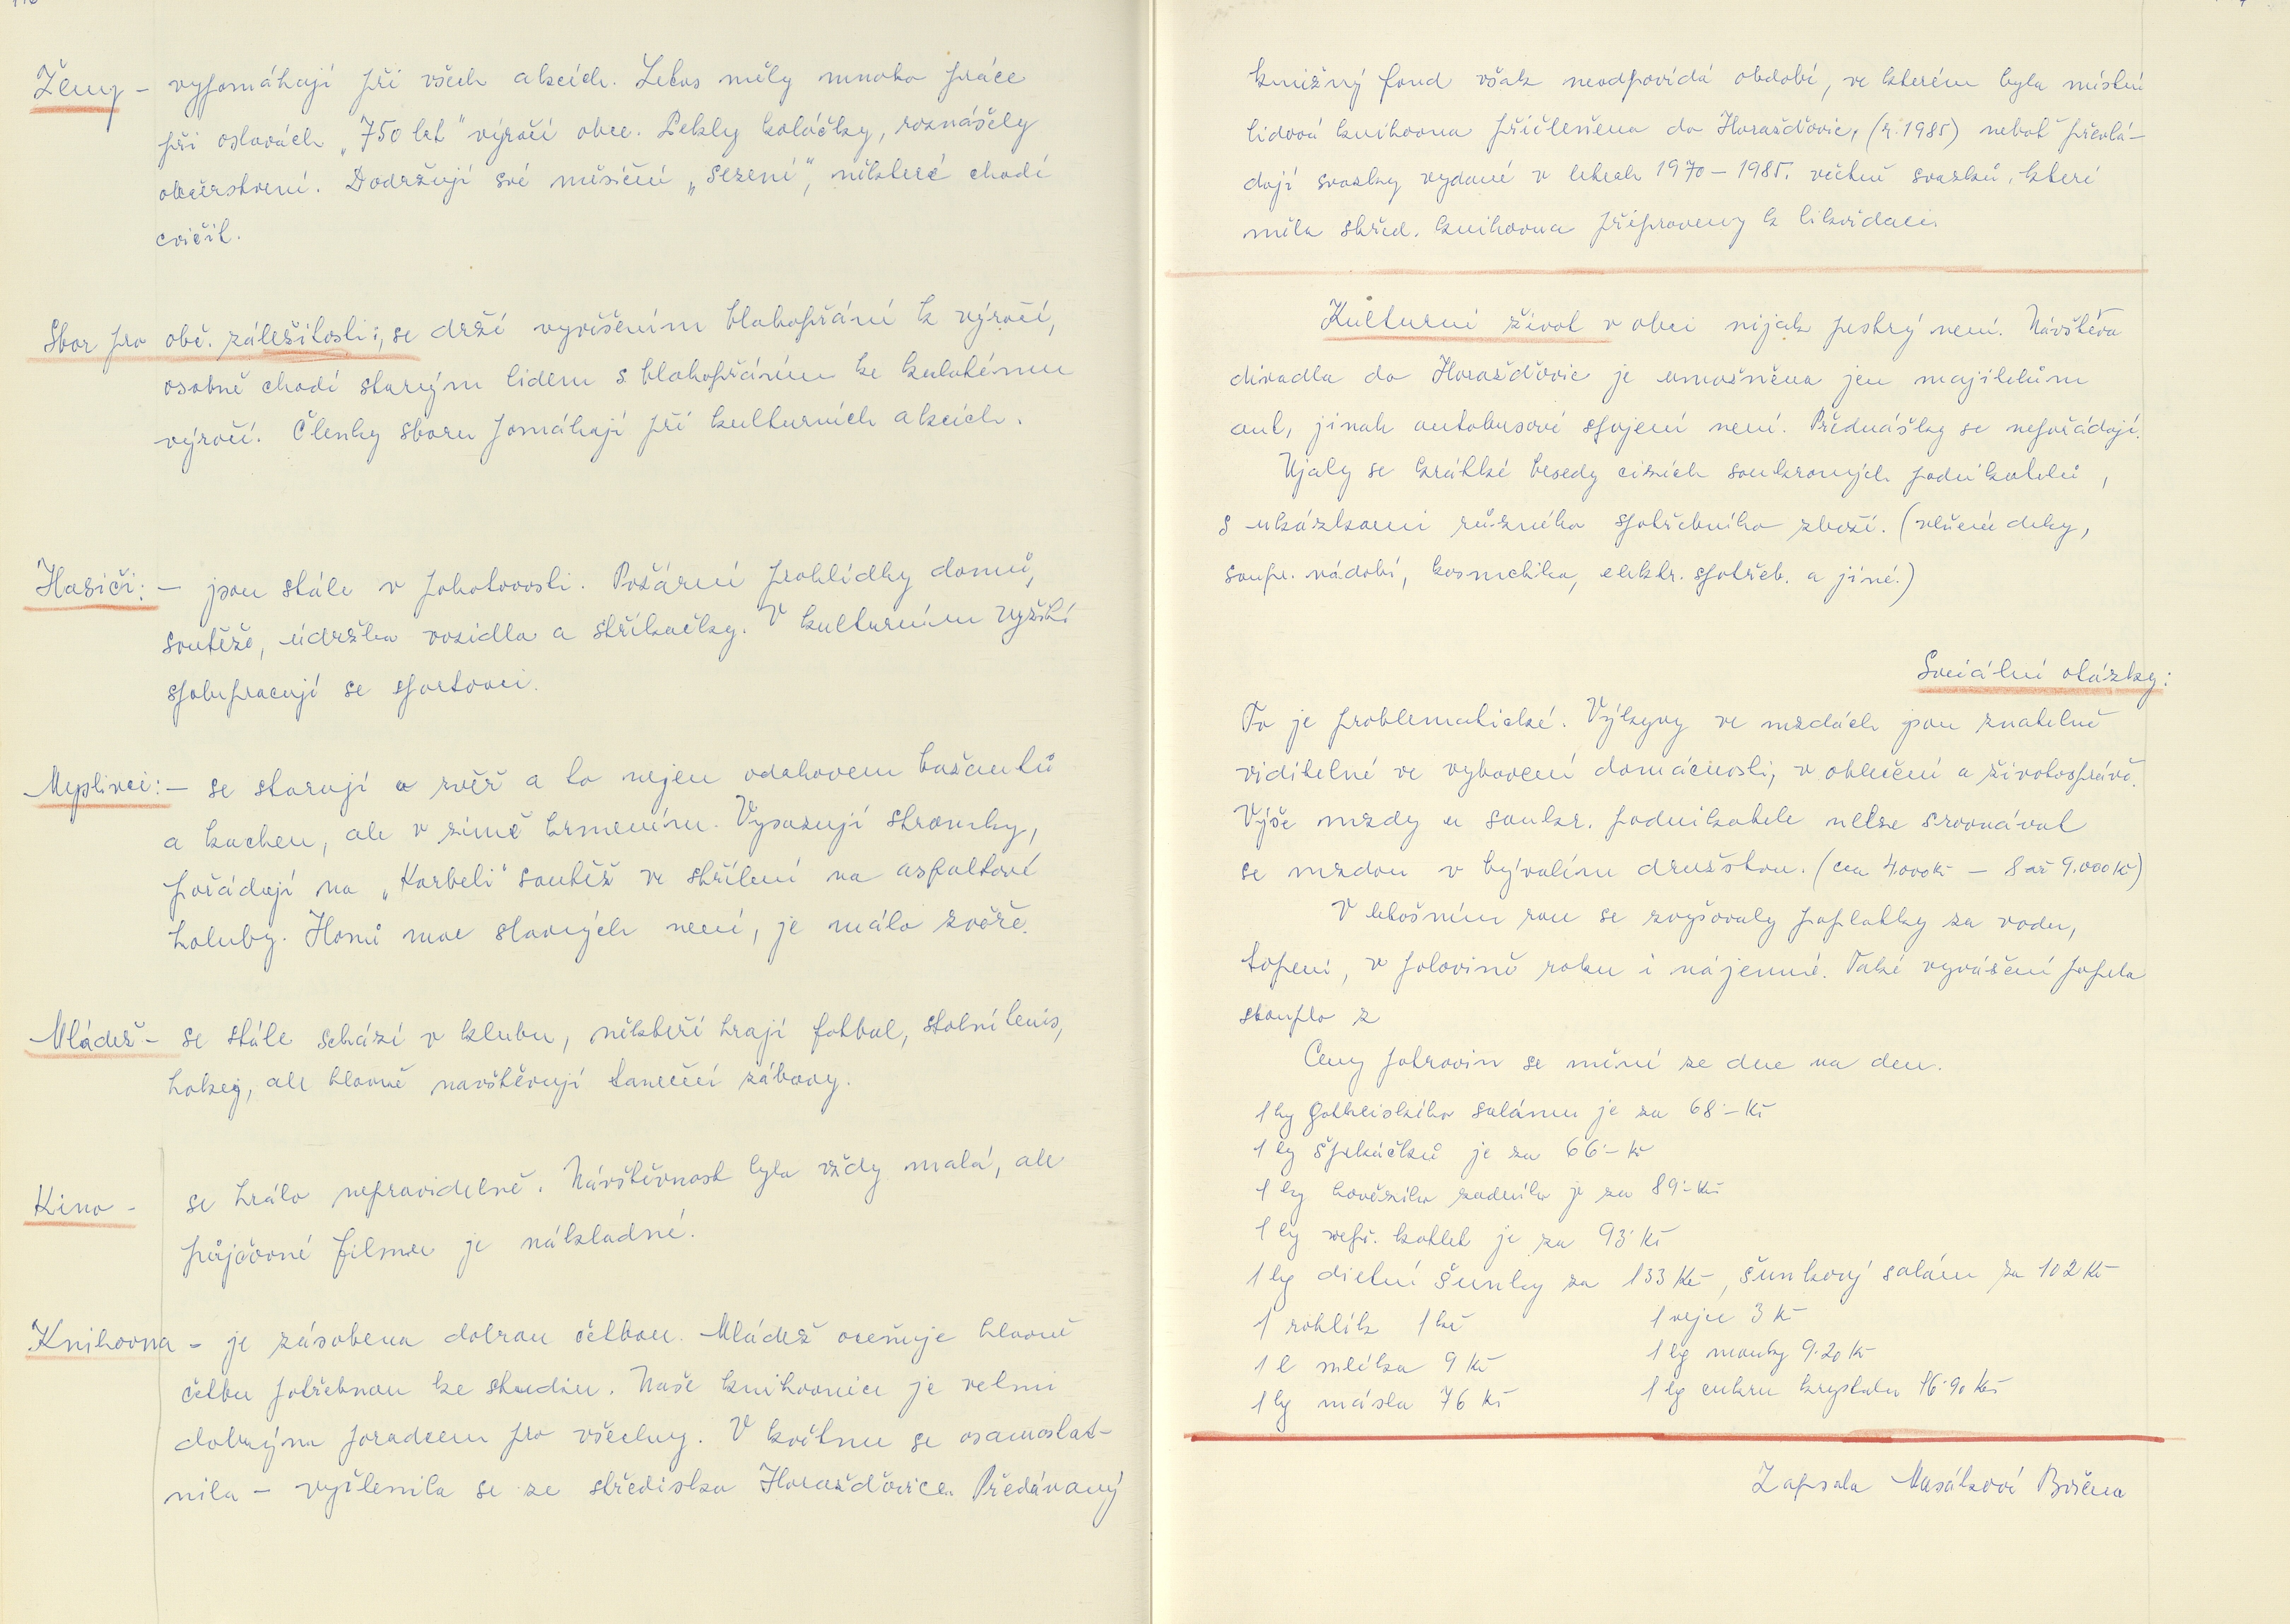 Ženy - vypomáhají při všech akcích. Letos měly mnoho práce
při oslavách „750 let" výročí obce. Pekly koláčky, roznášely
občerstvení. Dodržují své měsíční „sezení", některé chodí
cvičit.
Sbor pro obč. záležitosti:, se drží vyvěšením blahopřání k výročí,
osobně chodí starým lidem s blahopřáním ke kulatému
výročí. Členky sboru pomáhají při kulturních akcích.
Hasiči: - jsou stále v pohotovosti. Požární prohlídky domů,
soutěže, údržba vozidla a stříkačky. V kulturním vyžití
spolupracují se sportovci.
Myslivci: - se starají o zvěř a to nejen odchovem bažantů
a kachen, ale v zimě krmením. Vysazují stromky,
pořádají na „Korbeli" soutěž ve střílení na asfaltové
holuby. Honů moc slavných není, je málo zvěře.
Mládež - se stále schází v klubu, někteří hrají fotbal, stolní tenis,
hokej, ale hlavně navštěvují taneční zábavy.
Kino - se hrálo nepravidelně. Návštěvnost byla vždy malá, ale
půjčovné filmu je nákladné.
Knihovna - je zásobena dobrou četbou. Mládež oceňuje hlavně
četbu potřebnou ke studiu. Naše knihovnice je velmi
dobrým poradcem pro všechny. V květnu se osamostat-
nila - vyčlenila se ze střediska Horažďovice. Předávaný
knižný fond však neodpovídá období, ve kterém byla místní
lidová knihovna přičleněna do Horažďovic, (r. 1985) neboť převlá-
dají svazky vydané v letech 1970 - 1985. včetně svazků, které
měla střed. knihovna připraveny k likvidaci.
Kulturní život v obci nijak pestrý není. Návštěva
divadla do Horažďovic je umožněna jen majitelům
aut, jinak autobusové spojení není. Přednášky se nepořádají.
Ujaly se krátké besedy cizích soukromých podnikatelů,
s ukázkami různého spotřebního zboží. (vlněné deky,
soupr. nádobí, kosmetika, elektr. spotřeb. a jiné.)
Sociální otázky:
To je problematické. Výkyvy ve mzdách jsou znatelně
viditelné ve vybavení domácnosti, v oblečení a životosprávě.
Výše mzdy u soukr. podnikatele nelze srovnávat
se mzdou v bývalém družstvu. (cca 4.000 Kč - 8 až 9.000 Kč)
V letošním roce se zvyšovaly poplatky za vodu,
topení, v polovině roku i nájemné. Také vyvážení popela
stouplo z
Ceny potravin se mění ze dne na den.
1 kg gothajského salámu je za 68.- Kč
1 kg špekáčků je za 66.- Kč
1 kg hovězího zadního je za 89.- Kč
1 kg vepř. kotlet je za 93. Kč
1 kg dietní šunky za 133 Kč, šunkový salám za 102 Kč
1 rohlík 1 kč 1 vejce 3 Kč
1 l mléka 9 Kč 1 kg mouky 9.20 Kč
1 kg másla 76 Kč 1 kg cukru krystalu 16.90 Kč
Zapsala Masátková Božena